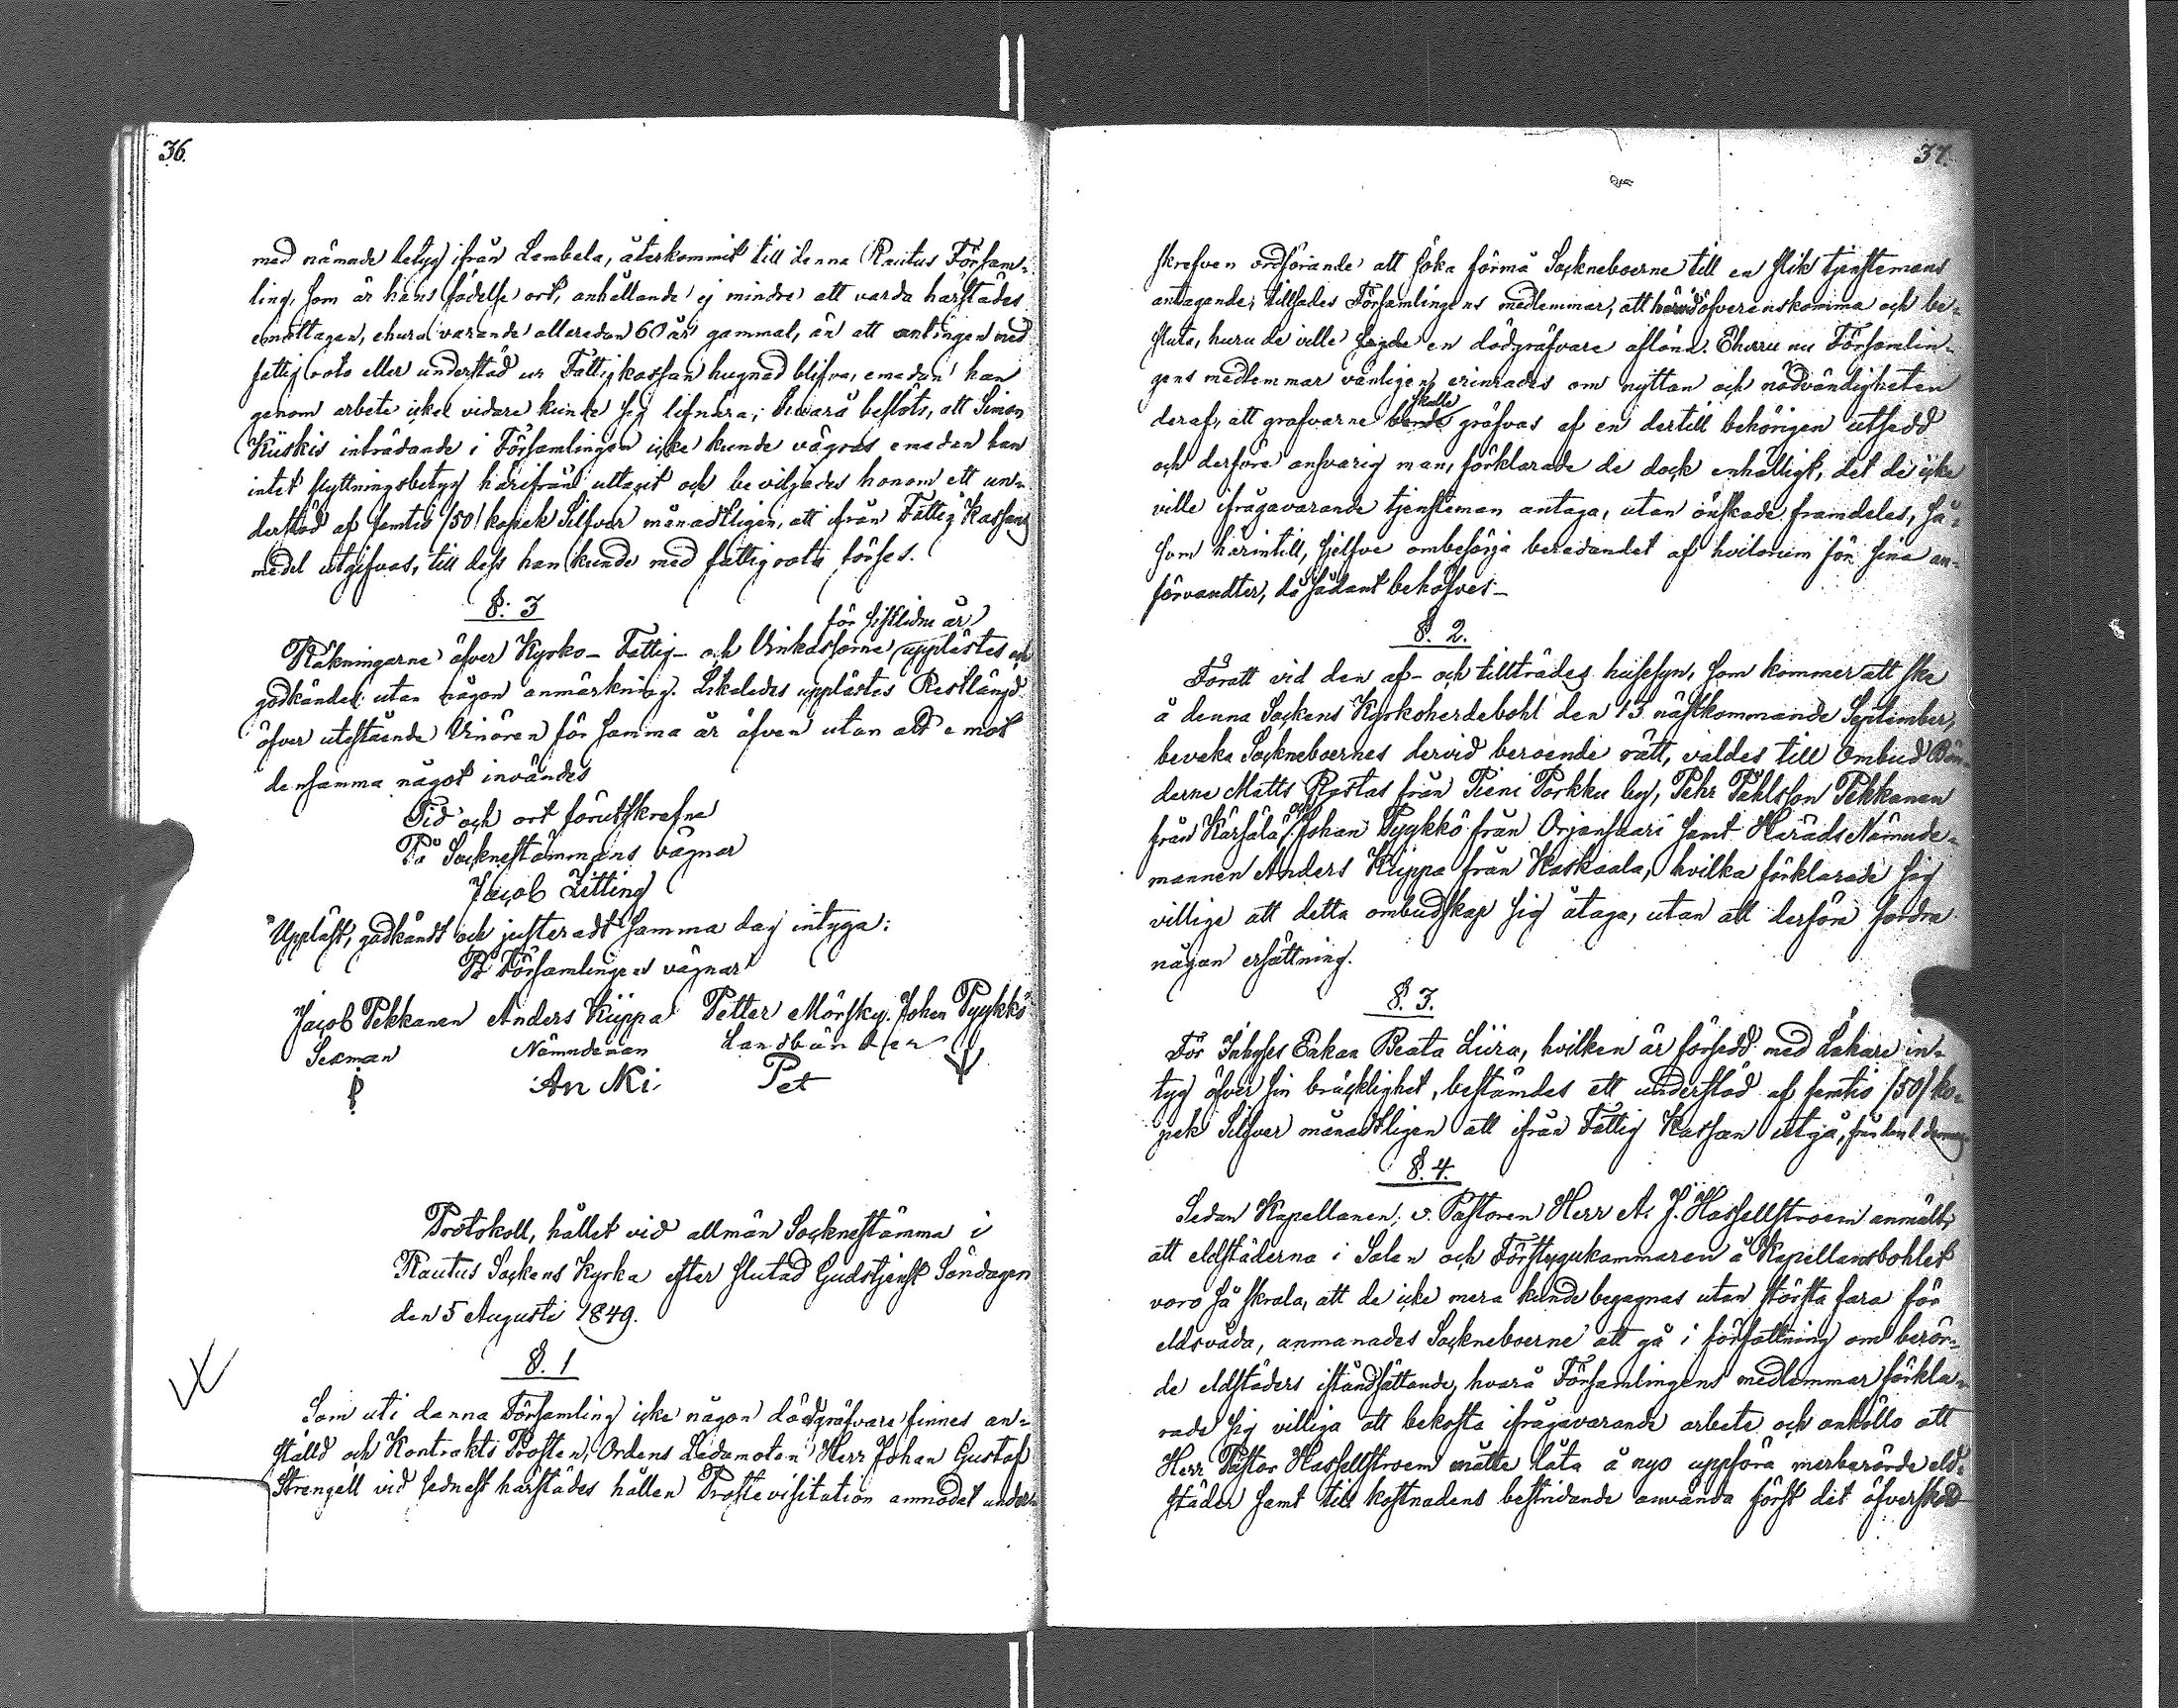 36.
med nämnde betyg ifrån Lembela, återkommit till denna Rautus Försam-
ling, som är hans födelse ort, anhållande ej mindre att varda härstädes
emottagen, ehuru varande allaredan 60 år gammal, än att antingen med
fattig rota eller understöd ur Fattigkassan hugnad blifva, emedan han
genom arbete icke vidare kunde sig lifnära; hvarå beslöts, att Simon
Kiiskis inträdande i Församlingen icke kunde vägras emedan han
intet flyttningsbetyg härifrån uttagit och bevilgades honom ett un-
derstöd af femtio /50/ kopek Silfver månadtligen, att ifrån Fattig Kassans
medel utgifvas, till dess han kunde med fattigrota förses.
§. 3
för sistledne år
Räkningarne öfver Kyrko- Fattig- och Vinkassorne upplästes och
godkändes utan någon anmärkning. Likaledes upplästes Restlängd
öfver utestående Vinören för samma år äfven utan att emot
densamma något invändes
Tid och ort förutskrefne
På Sockнestämmans vägnar
Jacob Zitting
Uppläst, godkändt och justeradt samma dag intyga:
På Församlingens vägnar
Jacob Pekkanen Anders Kiippa Petter Mörsky. Johan Pyykkö
Sexman Nämndeman Landbönder
An Ki Pet
Protokoll, hållet vid allmän Sockнestämma i
Rautus Sockens Kyrka efter slutad Gudstjenst Söndagen
den 5 Augusti 1849.
§. 1
Som uti denna Församling icke någon dödgräfvare finnes an-
ställd och Kontrakts Prosten, Ordens Ledamoten Herr Johan Gustaf
Strengell vid sednast härstädes hållen Prostevisitation anmodat under-
37.
skrefven ordförande att söka förmå Sockneboerne till en slik tjenstemans
antagande; tillsades Församlingens medlemmar, att öfverenskomma och be-
sluta, huru de ville en dödgräfvare aflöna. Ehuru nu Församlin-
gens medlemmar vänligen erinrades om nyttan och nödvändigheten
skulle
deraf, att grafvarne borde gräfvas af en dertill behörigen utsedd
och derföre ansvarig man, förklarade de dock enhälligt, det de icke
ville ifrågavarande tjensteman antaga, utan önskade framdeles, så-
som härintill, sjelfve ombesörja beredandet af hvilorum för sina an-
förvandter, då sådant behöfves.-
§. 2.
Föratt vid den af- och tillträdes husesyn, som kommer att ske
å denna Sockens Kyrkoherdebohl den 13 nästkommande September,
bevaka Sockneboernes dervid beroende rätt, valdes till Ombud Bön-
derne Matts Rastas från Pieni Porkku by, Pehr Påhlsson Pekkanen
från Kärsälä, och Johan Pyykkö från Orjansaari samt Härads Nämnde-
mannen Anders Kiippa från Kaskaala, hvilka förklarade sig
villige att detta ombudskap sig åtaga, utan att derföre fordra
någon ersättning.
§. 3.
För Inhyses Enkan Beata Liira, hvilken är försedd med Läkare in-
tyg öfver sin bräcklighet, bestämdes ett understöd af femtio /50/ ko-
pek Silfver månadtligen att ifrån Fattig Kassan utgå,
§. 4.
Sedan Kapellanen, v. Pastoren Herr A. J. Hassellstroem anmält,
att eldstäderna i Salen och Förstugukammaren å Kapellansbohlet
voro så skrala, att de icke mera kunde begagnas utan största fara för
eldsvåda, anmanades Sockneboerne att gå i författning om berör-
de eldstäders iståndsättande, hvarå Församlingens medlemmar förkla-
rade sig villiga att bekosta ifrågavarande arbete och anhöllo att
Herr Pastor Hassellstroem måtte låta å nyo uppföra merberörde eld-
städer samt till kostnadens bestridande använda först det öfverskott